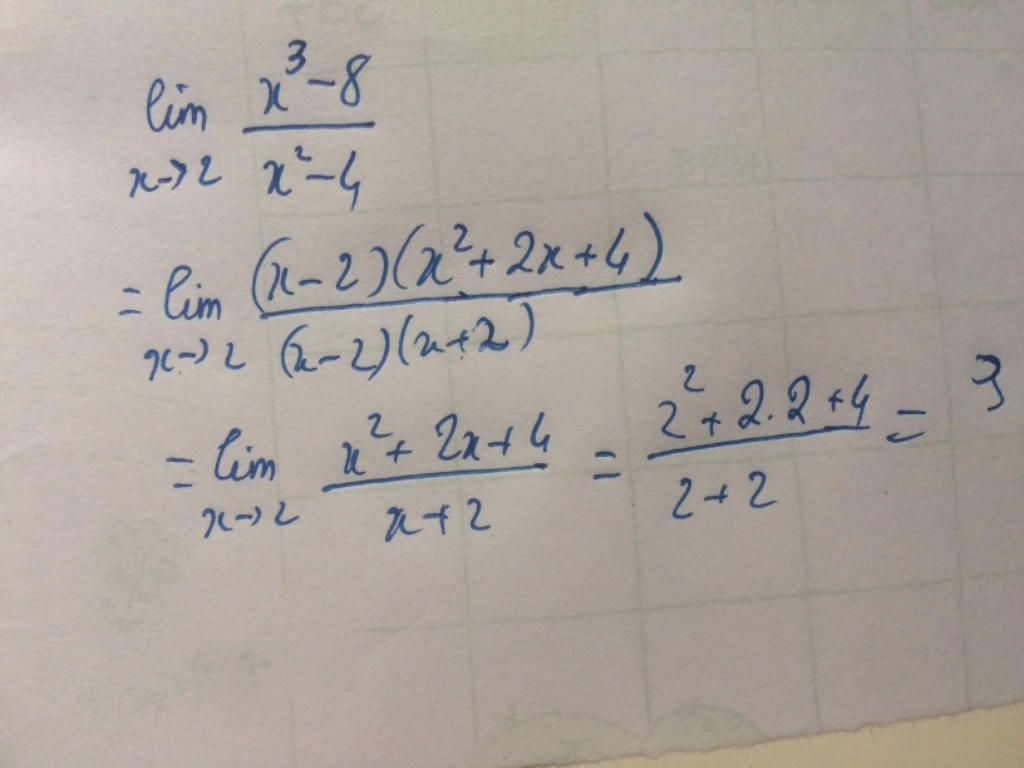 lim x→2 (x³-8)/(x²-4)
= lim x→2 ((x-2)(x²+2x+4))/((x-2)(x+2))
= lim x→2 (x²+2x+4)/(x+2) = (2²+2.2+4)/(2+2) = 3